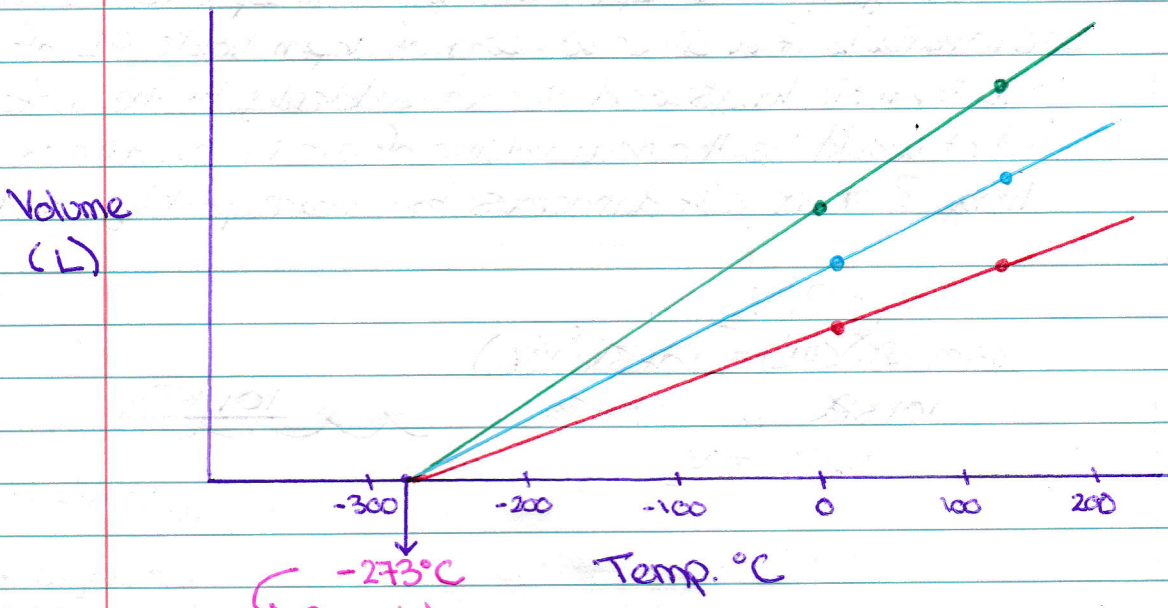 Volume
(L)
-300 -200 -100 0 100 200
-273°C
Temp. °C